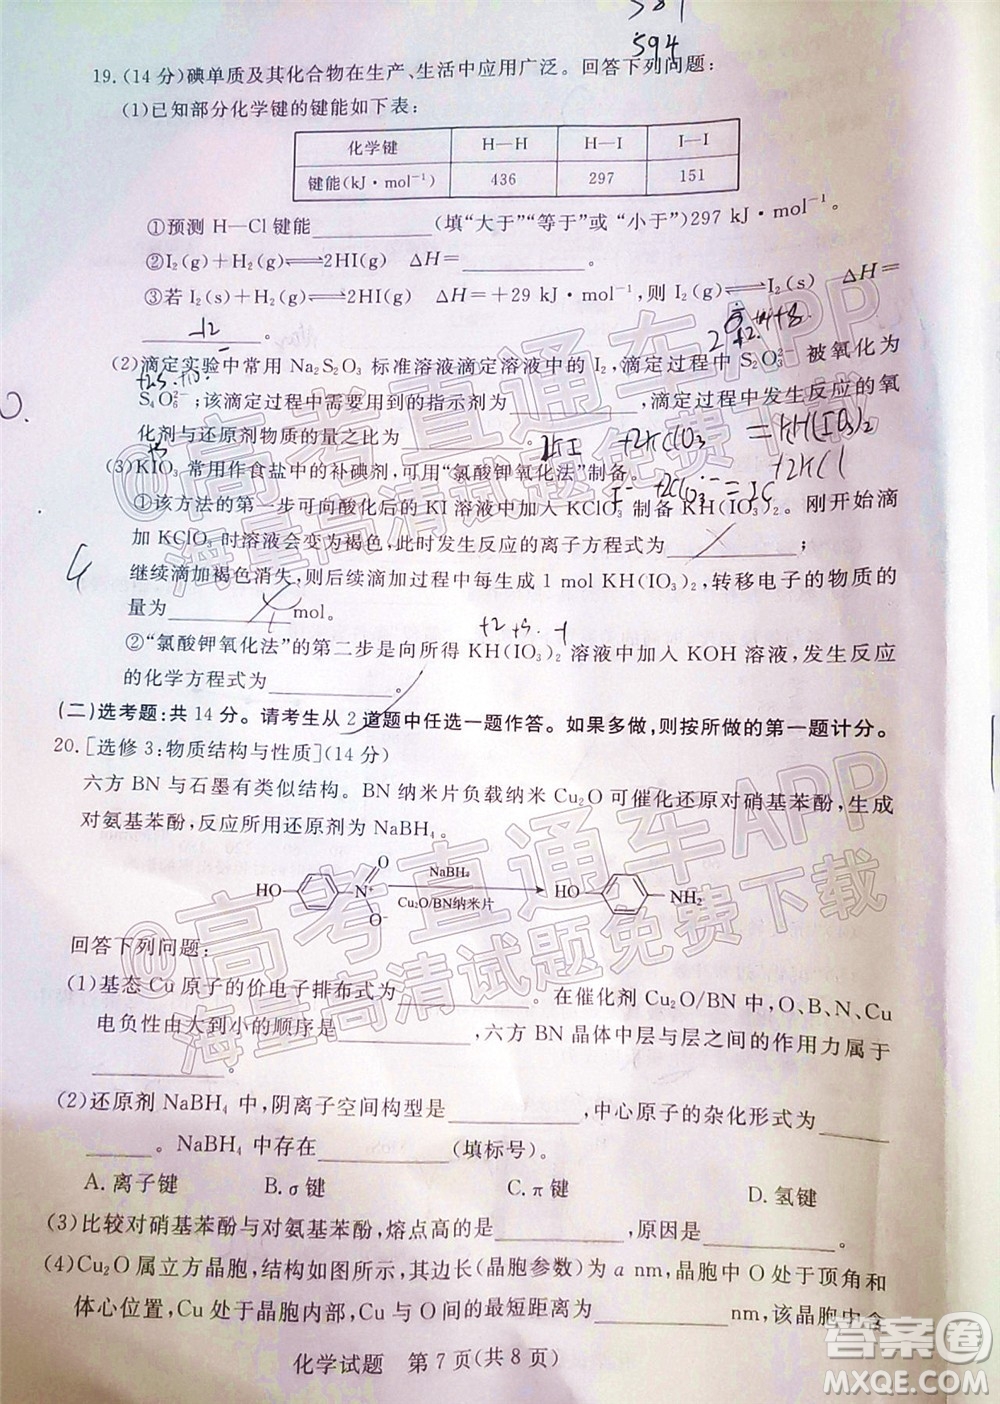 594
19.(14分)碘单质及其化合物在生产、生活中应用广泛。回答下列问题:
(1)已知部分化学键的键能如下表:
化学键 H—H H—I I—I
键能(kJ·mol⁻¹) 436 297 151
①预测 H—Cl 键能________(填“大于”“等于”或“小于”)297 kJ·mol⁻¹。
②I₂(g)+H₂(g)⇌2HI(g) ΔH=________。
③若 I₂(s)+H₂(g)⇌2HI(g) ΔH=+29 kJ·mol⁻¹,则 I₂(g)⇌I₂(s) ΔH=
________。
(2)滴定实验中常用 Na₂S₂O₃ 标准溶液滴定溶液中的 I₂,滴定过程中 S₂O₃²⁻ 被氧化为
S₄O₆²⁻;该滴定过程中需要用到的指示剂为________,滴定过程中发生反应的氧
化剂与还原剂物质的量之比为________
2KI +2KClO₃ =KH(IO₃)₂
+2KCl
(3)KIO₃ 常用作食盐中的补碘剂,可用“氯酸钾氧化法”制备。
①该方法的第一步可向酸化后的 KI 溶液中加入 KClO₃ 制备 KH(IO₃)₂。刚开始滴
加 KClO₃ 时溶液会变为褐色,此时发生反应的离子方程式为________;
继续滴加褐色消失,则后续滴加过程中每生成 1 mol KH(IO₃)₂,转移电子的物质的
量为________mol。
②“氯酸钾氧化法”的第二步是向所得 KH(IO₃)₂ 溶液中加入 KOH 溶液,发生反应
的化学方程式为________。
(二)选考题:共 14 分。请考生从 2 道题中任选一题作答。如果多做,则按所做的第一题计分。
20.[选修 3:物质结构与性质](14 分)
六方 BN 与石墨有类似结构。BN 纳米片负载纳米 Cu₂O 可催化还原对硝基苯酚,生成
对氨基苯酚,反应所用还原剂为 NaBH₄。
HO N⁺ O O⁻ NaBH₄ Cu₂O/BN纳米片 HO NH₂
回答下列问题:
(1)基态 Cu 原子的价电子排布式为________。在催化剂 Cu₂O/BN 中,O、B、N、Cu
电负性由大到小的顺序是________,六方 BN 晶体中层与层之间的作用力属于
________。
(2)还原剂 NaBH₄ 中,阴离子空间构型是________,中心原子的杂化形式为____
____。NaBH₄ 中存在________(填标号)。
A. 离子键 B. σ 键 C. π 键 D. 氢键
(3)比较对硝基苯酚与对氨基苯酚,熔点高的是________,原因是________。
(4)Cu₂O 属立方晶胞,结构如图所示,其边长(晶胞参数)为 a nm,晶胞中 O 处于顶角和
体心位置,Cu 处于晶胞内部,Cu 与 O 间的最短距离为________nm,该晶胞中含
化学试题 第 7 页(共 8 页)
@高考直通车APP
海量高清试题免费下载
@高考直通车APP
海量高清试题免费下载
答案圈
MXQE.COM